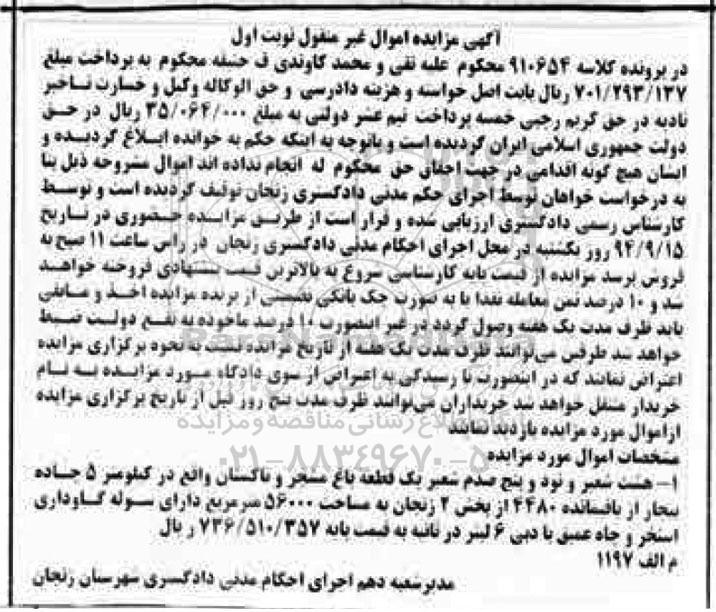 آگهی مزایده اموال غیر منقول نوبت اول
در پرونده کلاسه ۹۱۰۶۵۴ محکوم علیه تقی و محمد کاوندی ف حنیفه محکوم به پرداخت مبلغ
۷۰۱/۲۹۳/۱۳۷ ریال بابت اصل خواسته و هزینه دادرسی و حق الوکاله وکیل و خسارت تاخیر
تادیه در حق کریم رجبی خمسه پرداخت نیم عشر دولتی به مبلغ ۳۵/۰۶۴/۰۰۰ ریال در حق
دولت جمهوری اسلامی ایران گردیده است و باتوجه به اینکه حکم به خوانده ابلاغ گردیده و
ایشان هیچ گونه اقدامی در جهت احقاق حق محکوم له انجام نداده اند اموال مشروحه ذیل بنا
به درخواست خواهان توسط اجرای حکم مدنی دادگستری زنجان توقیف گردیده است و توسط
کارشناس رسمی دادگستری ارزیابی شده و قرار است از طریق مزایده حضوری در تاریخ
۹۴/۹/۱۵ روز یکشنبه در محل اجرای احکام مدنی دادگستری زنجان در راس ساعت ۱۱ صبح به
فروش برسد مزایده از قیمت پایه کارشناسی شروع به بالاترین قیمت پیشنهادی فروخته خواهد
شد و ۱۰ درصد ثمن معامله نقدا یا به صورت چک بانکی تضمینی از برنده مزایده اخذ و مابقی
باید ظرف مدت یک هفته وصول گردد در غیر اینصورت ۱۰ درصد ماخوذه به نفع دولت ضبط
خواهد شد طرفین می‌توانند ظرف مدت یک هفته از تاریخ مزایده نسبت به نحوه برگزاری مزایده
اعتراض نمایند که در اینصورت با رسیدگی به اعتراض از سوی دادگاه مورد مزایده به نام
خریدار منتقل خواهد شد خریداران می‌توانند ظرف مدت پنج روز قبل از تاریخ برگزاری مزایده
ازاموال مورد مزایده بازدید نمایند
مشخصات اموال مورد مزایده
۱- هشت شعیر و نود و پنج صدم شعیر یک قطعه باغ مشجر و تاکستان واقع در کیلومتر ۵ جاده
بیجار از باقیمانده ۴۴۸۰ از بخش ۲ زنجان به مساحت ۵۶۰۰۰ مترمربع دارای سوله گاوداری
استخر و چاه عمیق با دبی ۶ لیتر در ثانیه به قیمت پایه ۷۳۶/۵۱۰/۳۵۷ ریال
م الف ۱۱۹۷
مدیرشعبه دهم اجرای احکام مدنی دادگستری شهرستان زنجان
۰۲۱-۸۸۳۴۹۶۷۰-۵